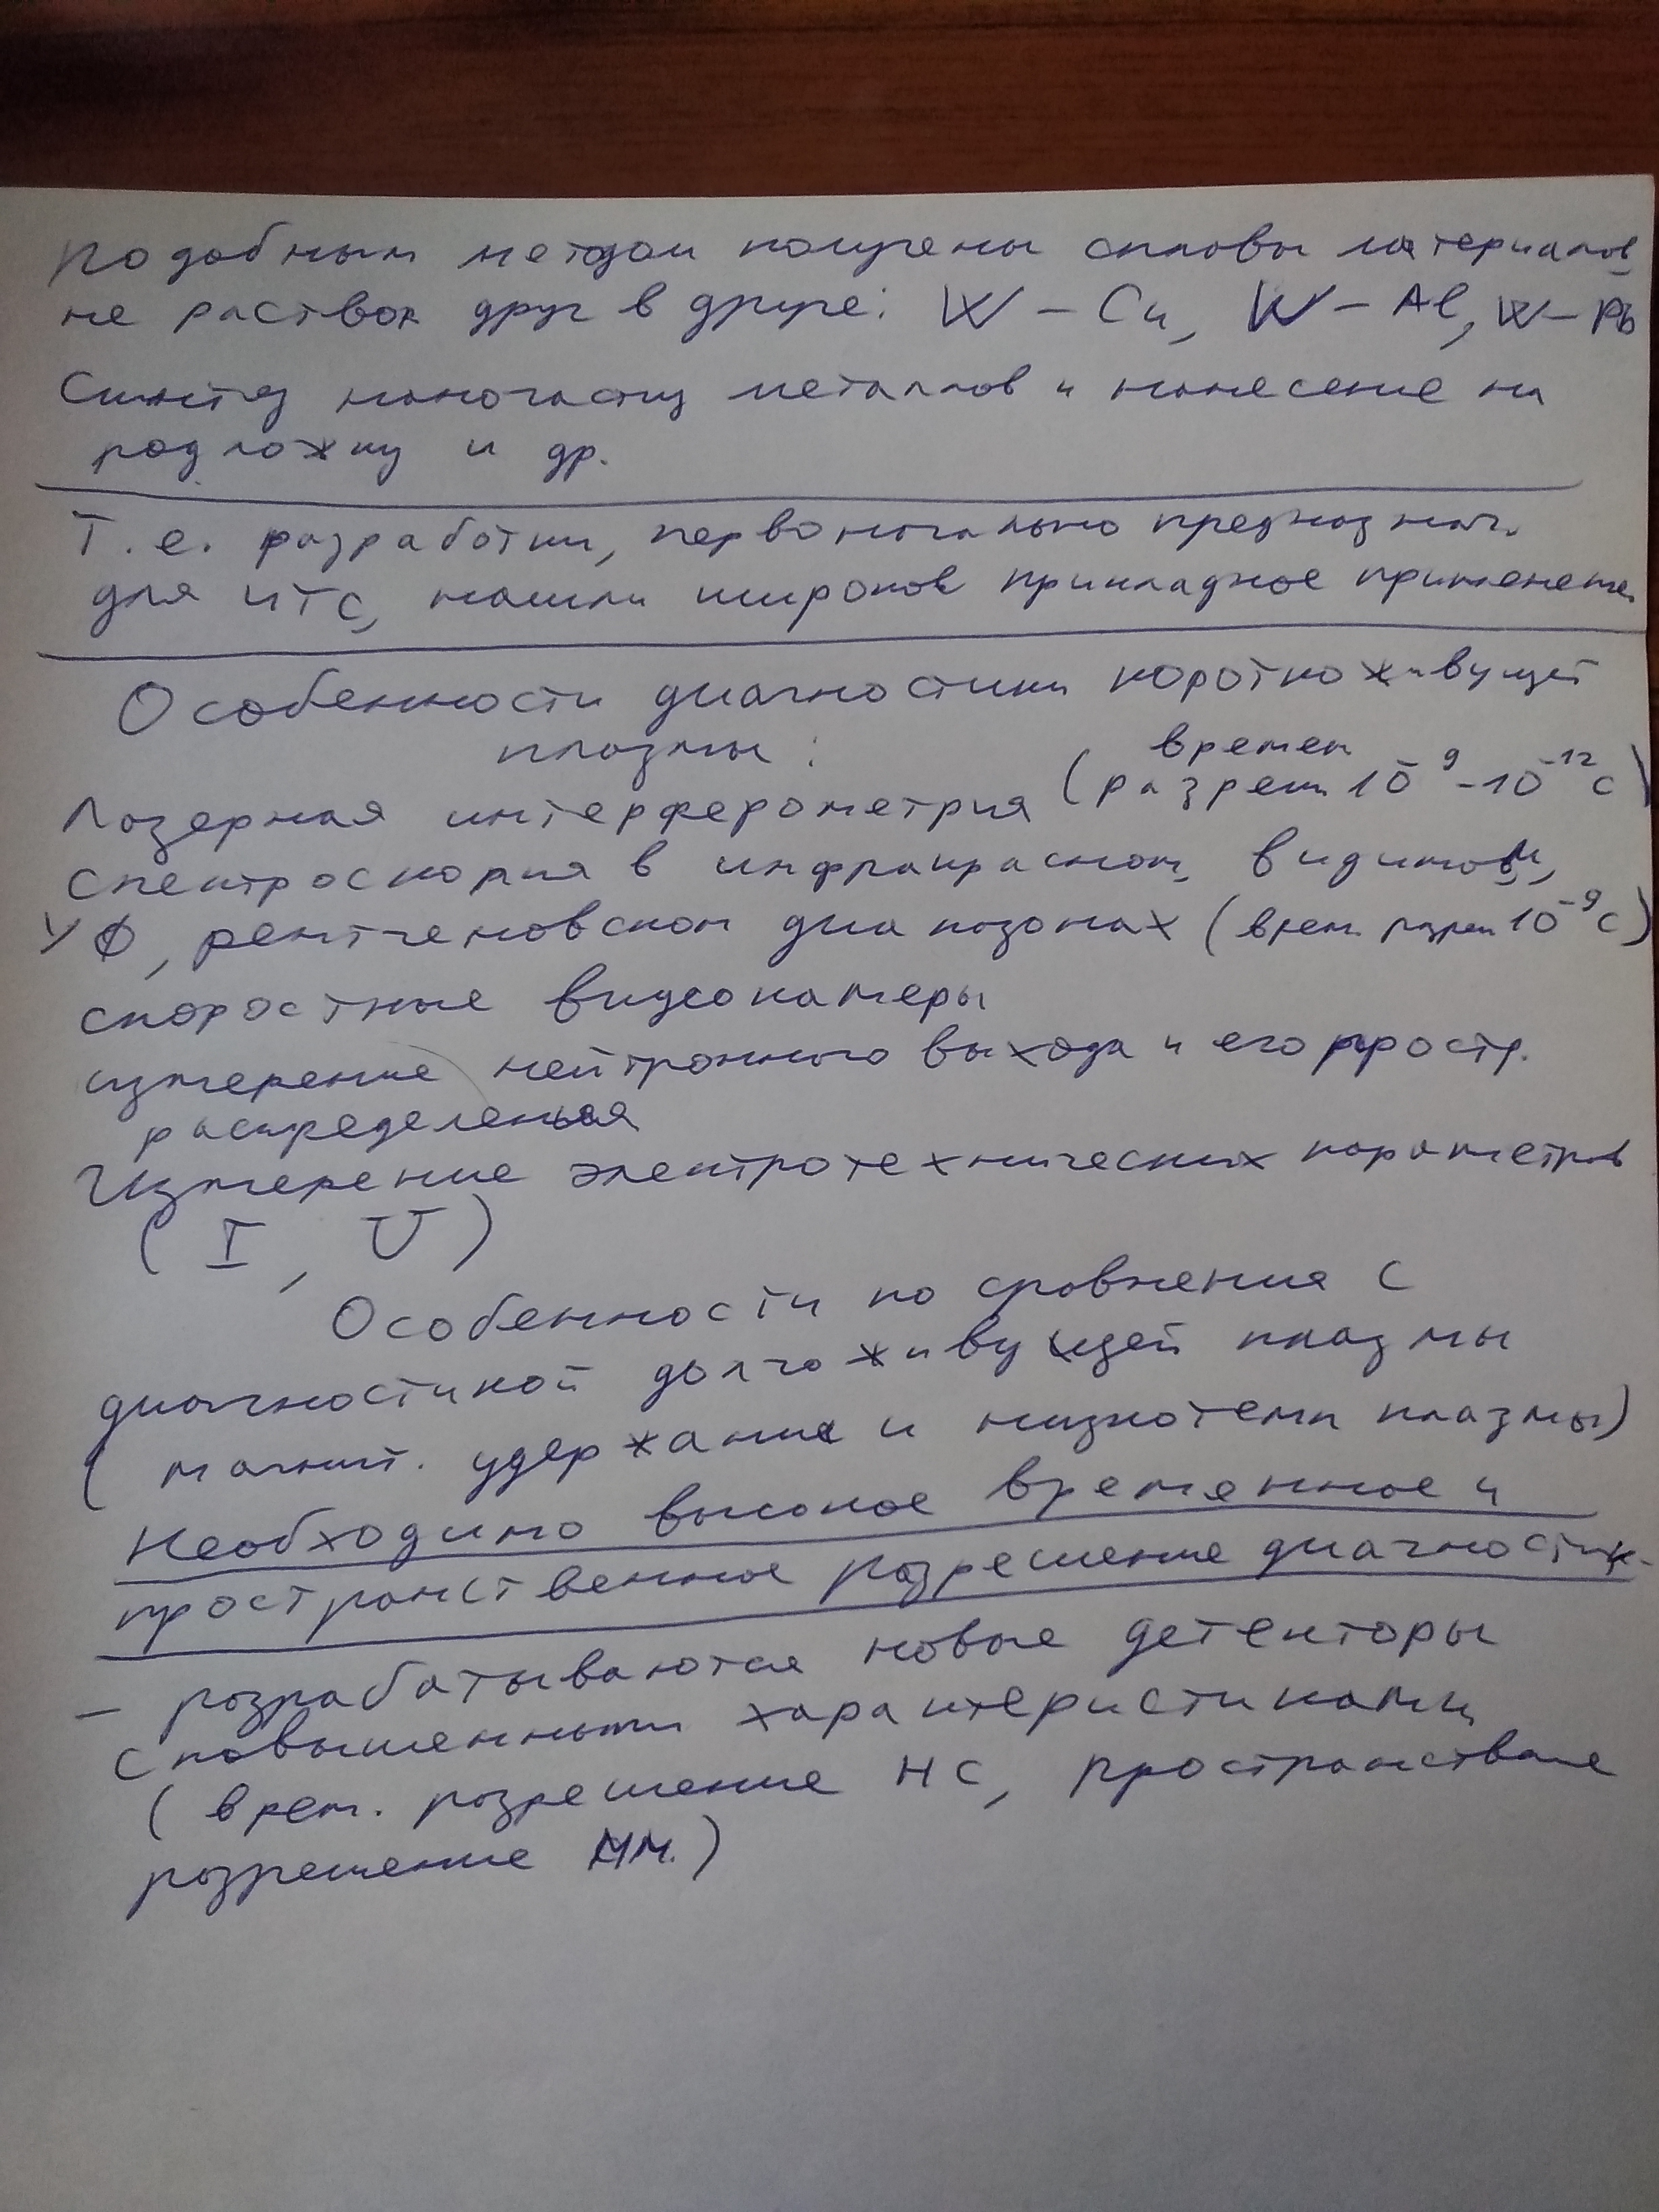 Подобным методом получены сплавы материалов
не раствор друг в друге: W – Cu, W – Al, W – Pb
Синтез наночастиц металлов и нанесение на
подложку и др.
Т.е. разработки, первоначально предназнач.
для ИТС, нашли широкое прикладное применение
Особенности диагностики короткоживущей
плазмы:
Лазерная интерферометрия (времен разреш 10⁻⁹ - 10⁻¹² с)
Спектроскопия в инфракрасном, видимом,
УФ, рентгеновском диапазонах (врем. разреш 10⁻⁹ с)
скоростные видеокамеры
измерение нейтронного выхода и его простр.
распределения
Измерение электротехнических параметров
( I , U )
Особенности по сравнения с
диагностикой долгоживущей плазмы
( магнит. удержание и низкотемп плазмы)
Необходимо высокое временное и
пространственное разрешение диагностик
– разрабатываются новые детекторы
с повышенными характеристиками
( врем. разрешение нс, пространствное
разрешение мм.)